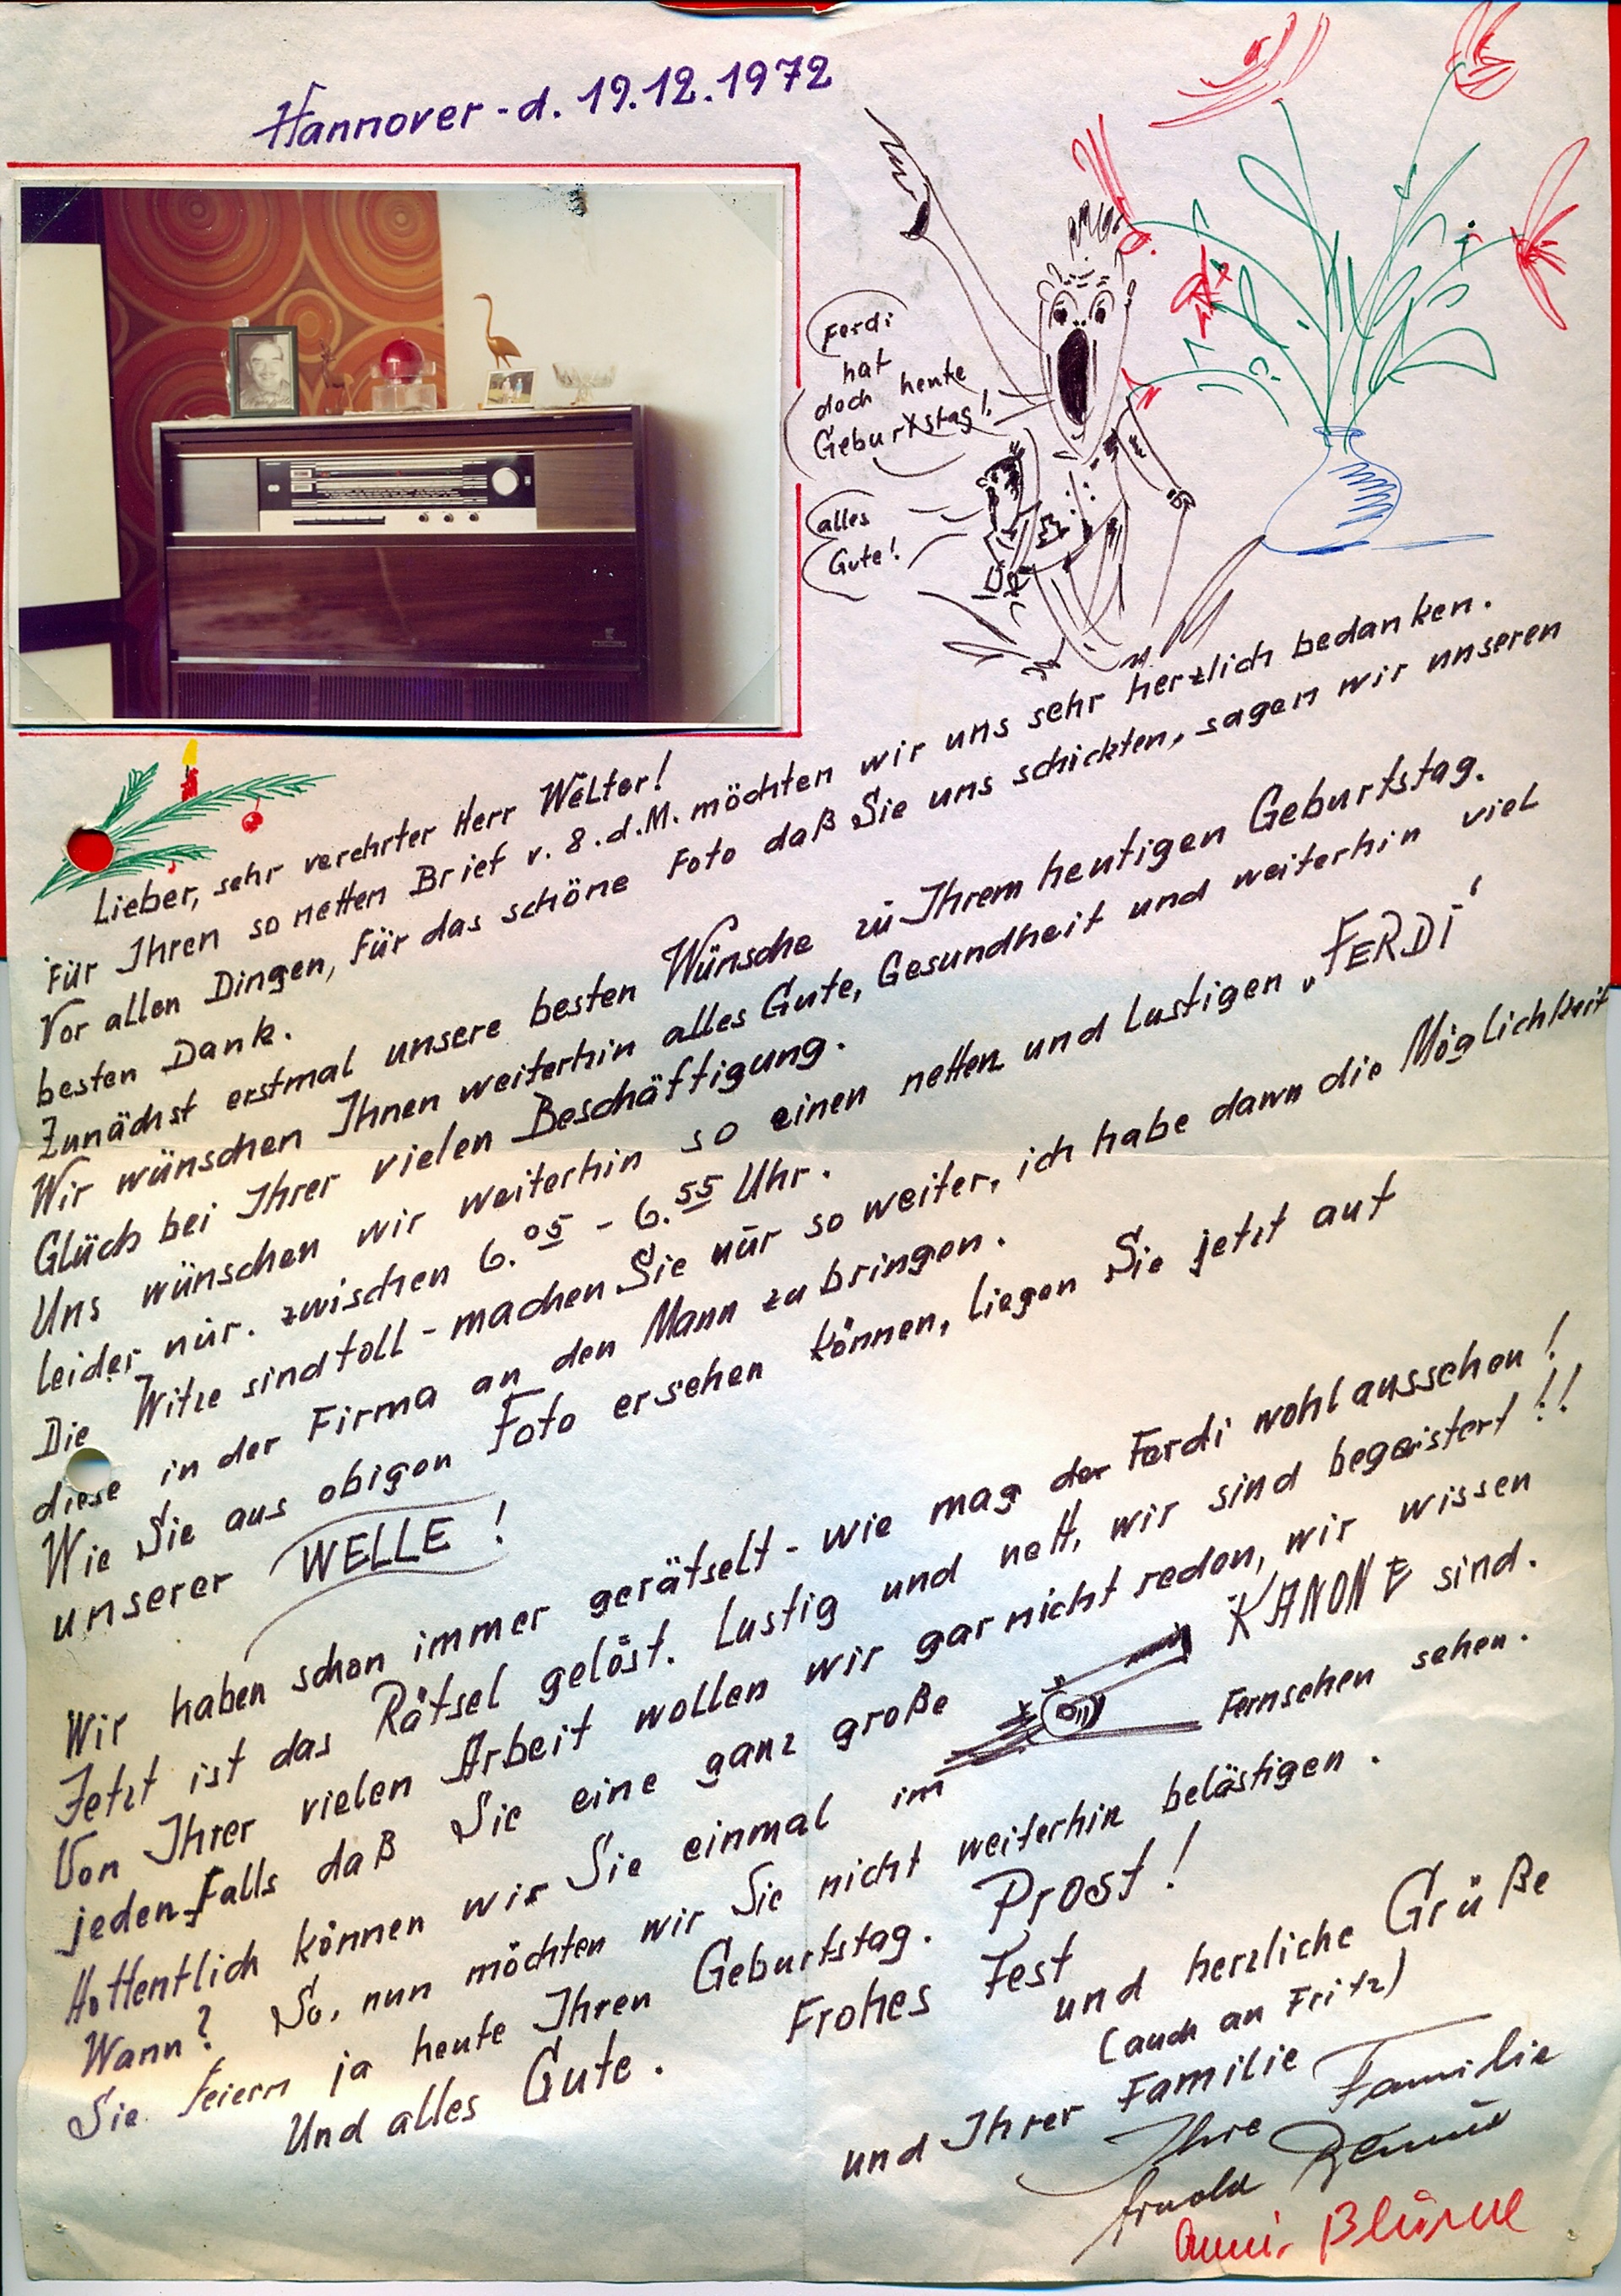 Hannover - d. 19.12.1972
Ferdi
hat
doch heute
Geburtstag!
alles
Gute!
Lieber, sehr verehrter Herr Welter!
Für Ihren so netten Brief v. 8. d. M. möchten wir uns sehr herzlich bedanken.
Vor allen Dingen, für das schöne Foto daß Sie uns schickten, sagen wir unseren
besten Dank.
Zunächst erstmal unsere besten Wünsche zu Ihrem heutigen Geburtstag.
Wir wünschen Ihnen weiterhin alles Gute, Gesundheit und weiterhin viel
Glück bei Ihrer vielen Beschäftigung.
Uns wünschen wir weiterhin so einen netten und lustigen „FERDI“
leider nur. zwischen 6.05 - 6.55 Uhr.
Die Witze sind toll - machen Sie nur so weiter, ich habe dann die Möglichkeit
diese in der Firma an den Mann zu bringen.
Wie Sie aus obigen Foto ersehen können, liegen Sie jetzt auf
unserer WELLE!
Wir haben schon immer gerätselt - wie mag der Ferdi wohl aussehen!
Jetzt ist das Rätsel gelöst. Lustig und nett, wir sind begeistert!!
Von Ihrer vielen Arbeit wollen wir gar nicht reden, wir wissen
jeden Falls daß Sie eine ganz große KANONE sind.
Hoffentlich können wir Sie einmal im Fernsehen sehen.
Wann? So, nun möchten wir Sie nicht weiterhin belästigen.
Sie feiern ja heute Ihren Geburtstag. Prost!
Und alles Gute.
Frohes Fest
und herzliche Grüße
(auch an Fritz)
und Ihrer Familie
Ihre Familie
Arnold